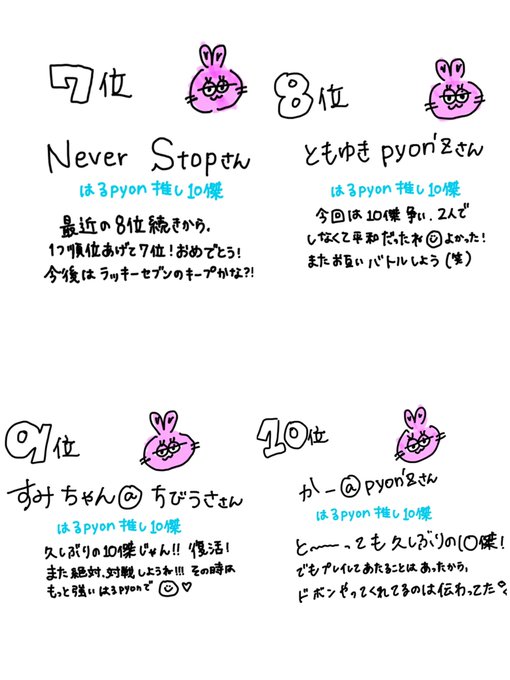 7位
Never Stopさん
はるpyon推し10傑
最近の8位続きから、
1つ順位あげて7位！おめでとう！
今後はラッキーセブンのキープかな?!
8位
ともゆきpyon'zさん
はるpyon推し10傑
今回は10傑争い、2人で
しなくて平和だったね☺よかった！
またお互いバトルしよう(笑)
9位
すみちゃん@ちびうささん
はるpyon推し10傑
久しぶりの10傑じゃん!! 復活！
また絶対、対戦しようね!!! その時は
もっと強いはるpyonで☺♡
10位
かー@pyon'zさん
はるpyon推し10傑
と〜〜っても久しぶりの10傑！
でもプレイしてあたることはあったから、
ドボンやってくれてるのは伝わってた♡